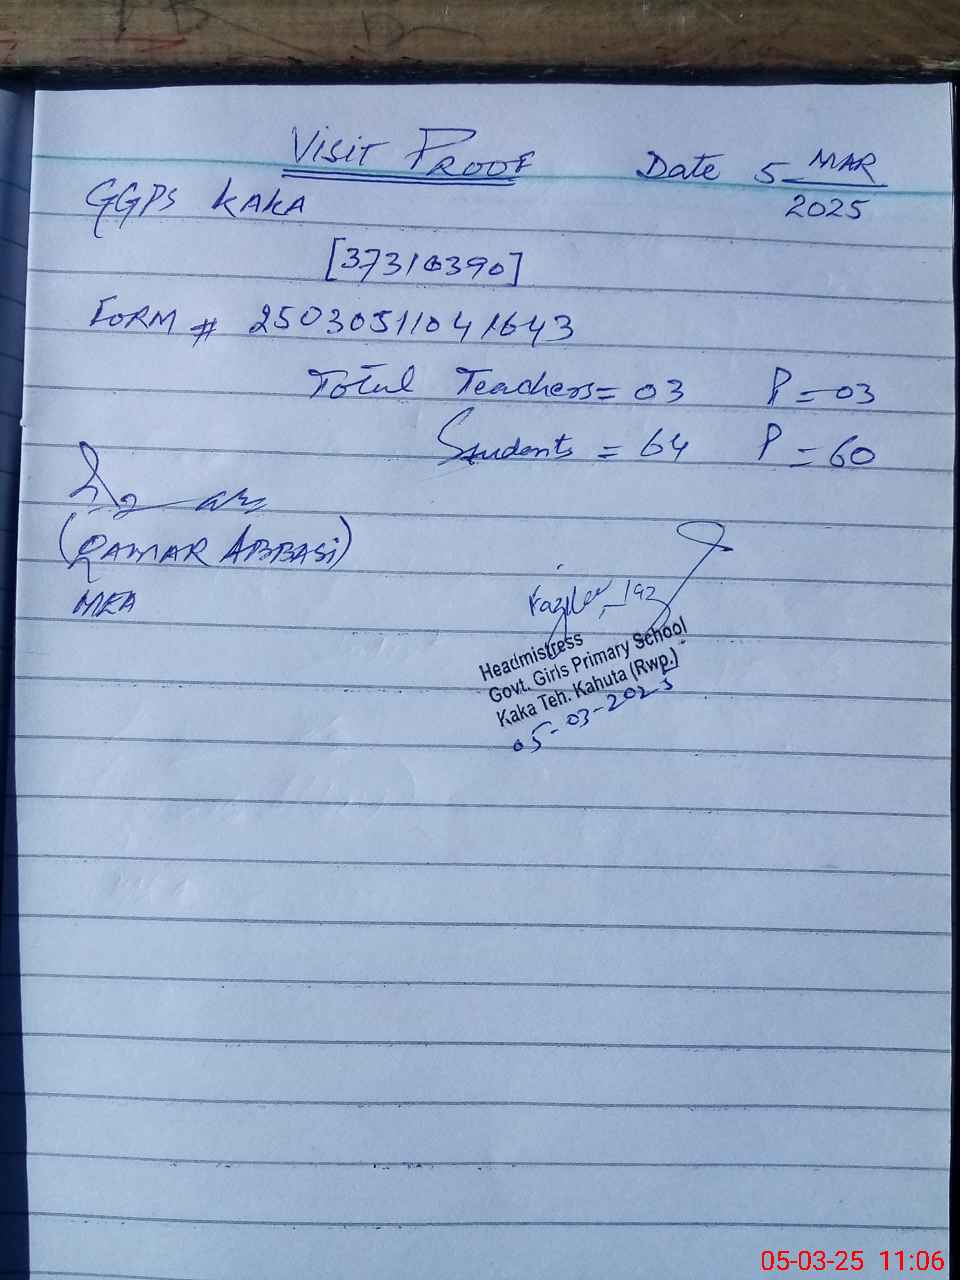 Visit Proof Date 5 MAR
2025
GGPS KAKA
[37310390]
FORM # 25030511041643
Total Teachers = 03 P = 03
Students = 64 P = 60
(QAMAR ABBASI)
MEA
Headmistress
Govt. Girls Primary School
Kaka Teh. Kahuta (Rwp.)
05-03-2025
05-03-25 11:06